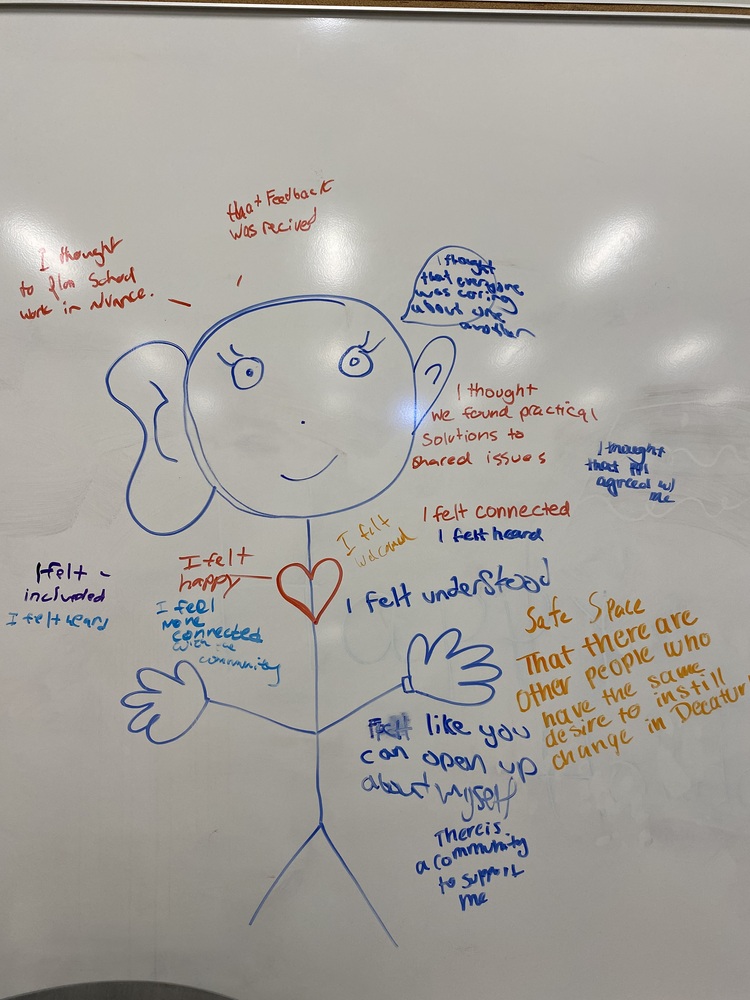 that Feedback
was recived
I thought
to plan School
work in advance.
I thought
that everyone
was caring
about one
another
I thought
we found practical
solutions to
shared issues
I thought
that
agreed w/
me
I felt connected
I felt heard
I felt
welcomed
I felt
happy
I felt
included
I felt heard
I feel
more
connected
with the
community
I felt understood
Safe Space
That there are
other people who
have the same
desire to instill
change in Decatur
Felt like you
can open up
about myself
There is
a community
to support
me